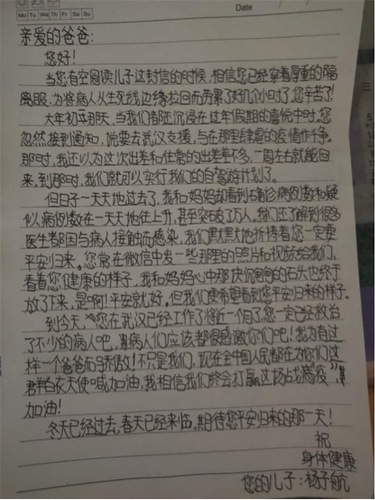 Mo Tu We Th Fr Sa Su
Date
亲爱的爸爸:
您好!
当您有空阅读儿子这封信的时候,相信您已经穿着厚重的隔
离服,为将病人从生死线边缘拉回而劳累了好几个小时了,您辛苦了!
大年初五那天,当我们都还沉浸在过年假期的喜悦中时,您
忽然接到通知,说要去武汉支援,与在那里肆虐的疫情作斗争。
那时,我还以为这次出差和往常的出差差不多,一周左右就能回
来,到那时,我们就可以实行我们的自驾游计划了。
但日子一天天地过去了,我和妈妈却看到确诊病例数和疑
似病例数在一天天地往上升,甚至突破了万人。我们还了解到很多
医生都因与病人接触而感染,我们默默地祈祷着您一定要
平安归来。您常在微信中发一些那里的照片和视频给我们,
看着您健康的样子,我和妈妈心中那块沉甸甸的石头也终于
放了下来,是啊!平安就好。但我们更希望看到您平安归来的样子。
到今天,您在武汉已经工作了将近一个月了,您一定已经救治
了不少的病人吧,那病人们应该都很感激你们吧!我为有这
样一个爸爸而骄傲!不只是我们,现在全中国人民都在为你们这
群白衣天使喊加油,我相信我们终会打赢这场战“疫”,
加油!
冬天已经过去,春天已经来临,期待您平安归来的那一天!
祝
身体健康
您的儿子:杨子航